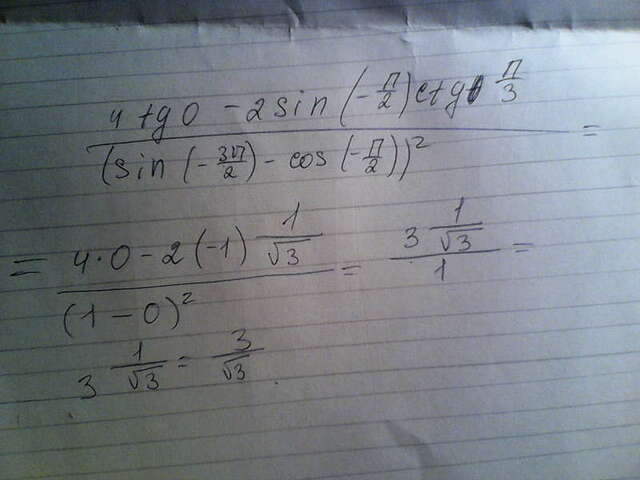 4 tg 0 - 2 sin (-π/2) ctg π/3
(sin (-3π/2) - cos (-π/2))² =
= 4·0 - 2(-1) 1/√3 / (1 - 0)² = 3 1/√3 / 1 =
3 1/√3 = 3/√3